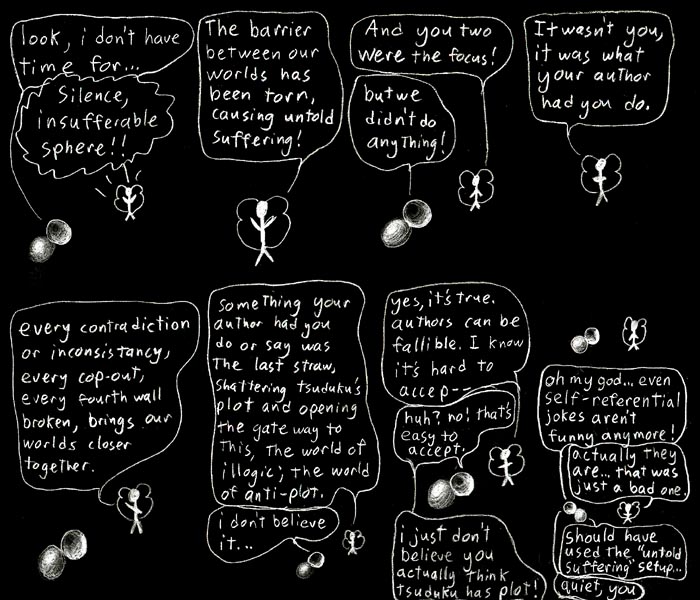 look, i don't have
time for...
Silence,
insufferable
sphere!!
The barrier
between our
worlds has
been torn,
causing untold
suffering!
And you two
were the focus!
but we
didn't do
anything!
It wasn't you,
it was what
your author
had you do.
every contradiction
or inconsistancy,
every cop-out,
every fourth wall
broken, brings our
worlds closer
together.
something your
author had you
do or say was
The last straw,
shattering tsuduku's
plot and opening
the gateway to
this, The world of
illogic; the world
of anti-plot.
i don't believe
it...
yes, it's true.
authors can be
fallible. I know
it's hard to
accep--
huh? no! that's
easy to
accept.
i just don't
believe you
actually think
tsuduku has plot!
oh my god... even
self-referential
jokes aren't
funny anymore!
actually they
are... that was
just a bad one.
should have
used the "untold
suffering" setup...
quiet, you